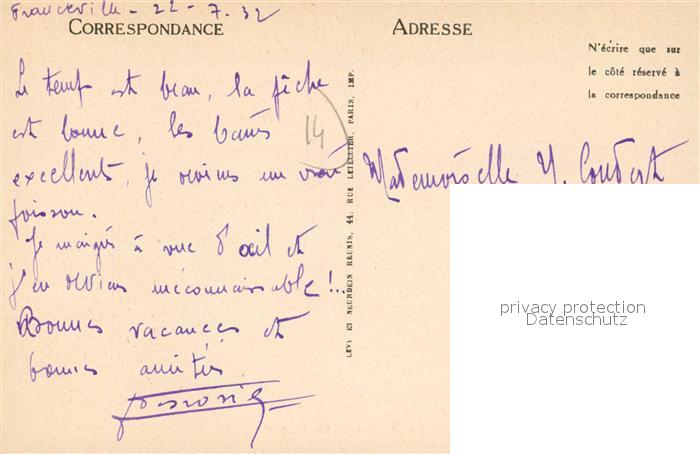 Franceville - 22 - 7. 32
CORRESPONDANCE
Le temps est beau, la pêche
est bonne, les bains
excellents, je deviens un vrai
poisson.
Je maigris à vue d'œil et
j'en deviens méconnaissable !..
Bonnes vacances et
bonnes amitiés.
14
LEVY ET NEURDEIN RÉUNIS, 44, RUE LETELLIER, PARIS, IMP.
ADRESSE
N'écrire que sur
le côté réservé à
la correspondance
Mademoiselle Y. Coudert
privacy protection
Datenschutz